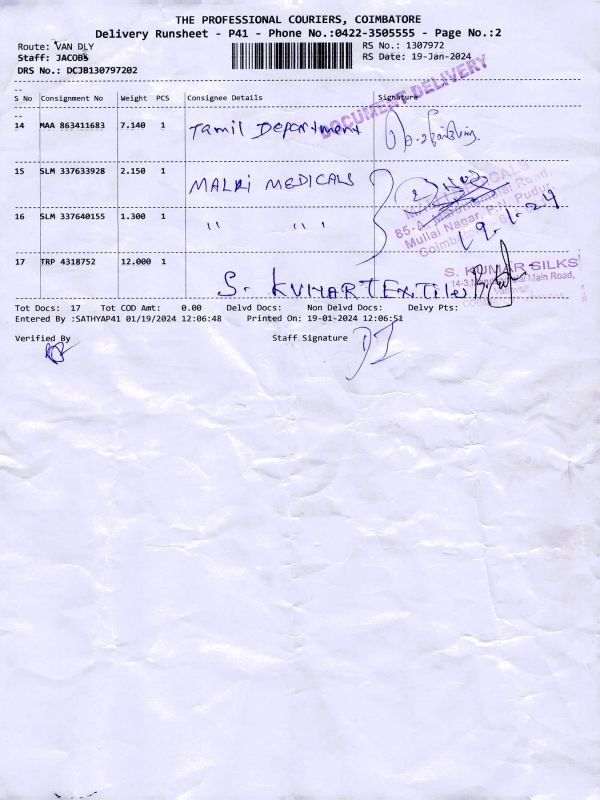 THE PROFESSIONAL COURIERS, COIMBATORE
Delivery Runsheet - P41 - Phone No.:0422-3505555 - Page No.:2
Route: VAN DLY
RS No.: 1307972
Staff: JACOBS
RS Date: 19-Jan-2024
DRS No.: DCJB130797202
DOCUMENT DELIVERY
S No Consignment No Weight PCS Consignee Details Signature
14 MAA 863411683 7.140 1 Tamil Department
15 SLM 337633928 2.150 1 MALRI MEDICALS
85-A, Road,
Mullai Nagar, P.N. Pudur
Coimbatore
19.1.24
16 SLM 337640155 1.300 1 " " "
17 TRP 4318752 12.000 1 S. KUMAR TEXTiles
S. KUMAR SILKS
Main Road,
Tot Docs: 17 Tot COD Amt: 0.00 Delvd Docs: Non Delvd Docs: Delvy Pts:
Entered By :SATHYAP41 01/19/2024 12:06:48 Printed On: 19-01-2024 12:06:51
Verified By Staff Signature